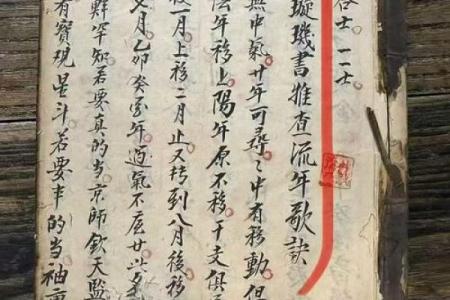 合士 一一士
璇璣書推查流年歌訣
無中氣廿年可尋之中有移動但
陰年移上陽年原不移干支俱
後一月上移二月止又括到八月後移
七月乙卯癸年過氣不座廿
鮮罕知若要真的当京師欽天監
有實現星斗若要丰的当袖